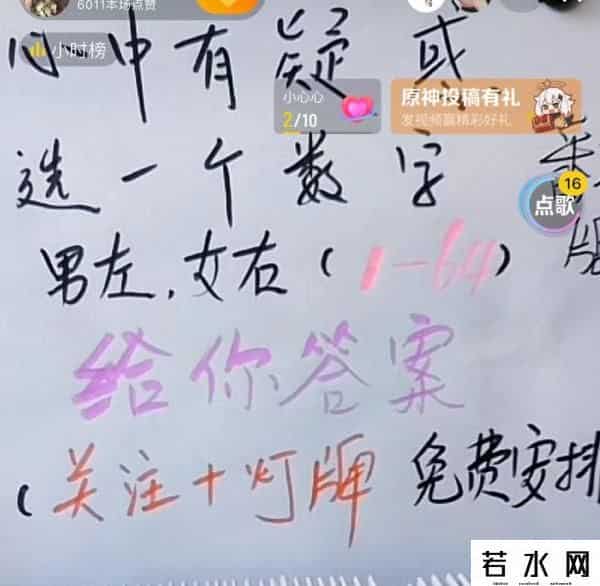 6011本场点赞
小时榜
心中有疑或
小心心
2/10
原神投稿有礼
发视频赢精彩好礼
选一个数字
16
点歌
男左,女右(1-64)
给你答案
(关注+灯牌 免费安排
若水网